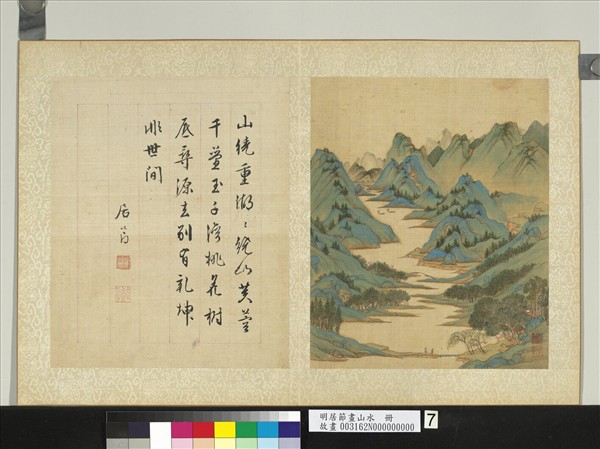 山繞重湖〻繞山芙蓉
千疊玉千灣桃花樹
底尋源去別有乾坤
非世間
居節
明居節畫山水 冊
故畫 003162N000000000
7